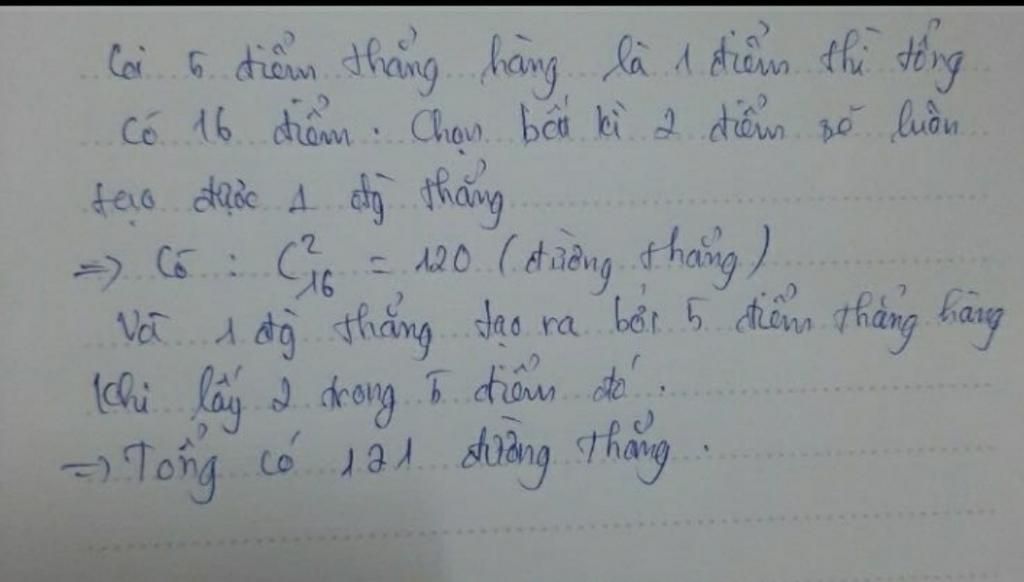 Coi 5 điểm thẳng hàng là 1 điểm thì tổng
có 16 điểm. Chọn bất kì 2 điểm số luôn
tạo được 1 đg thẳng
=> Có : C²₁₆ = 120 (đường thẳng)
Và 1 đg thẳng tạo ra bởi 5 điểm thẳng hàng
khi lấy 2 trong 5 điểm đó.
=> Tổng có 121 đường thẳng.